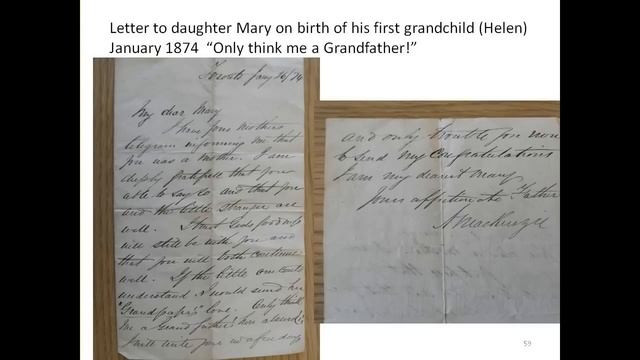 Letter to daughter Mary on birth of his first grandchild (Helen)
January 1874 “Only think me a Grandfather!”
Toronto Jany 26/74
My dear Mary
I have your mothers
telegram informing me that
you was a mother. I am
deeply gratefull that your
able to say so and that you
and the little stranger are
well. I trust Gods goodness
will still be with you and
that you will both continue
well. If the little one could
understand I would send her
"Grandpapa's" love. Only think
me a Grand father! how absurd!
I will write you in a few days
and only trouble you now
to send my Congratulations
I am my dearest Mary
Your affectionate Father
A Mackenzie
59